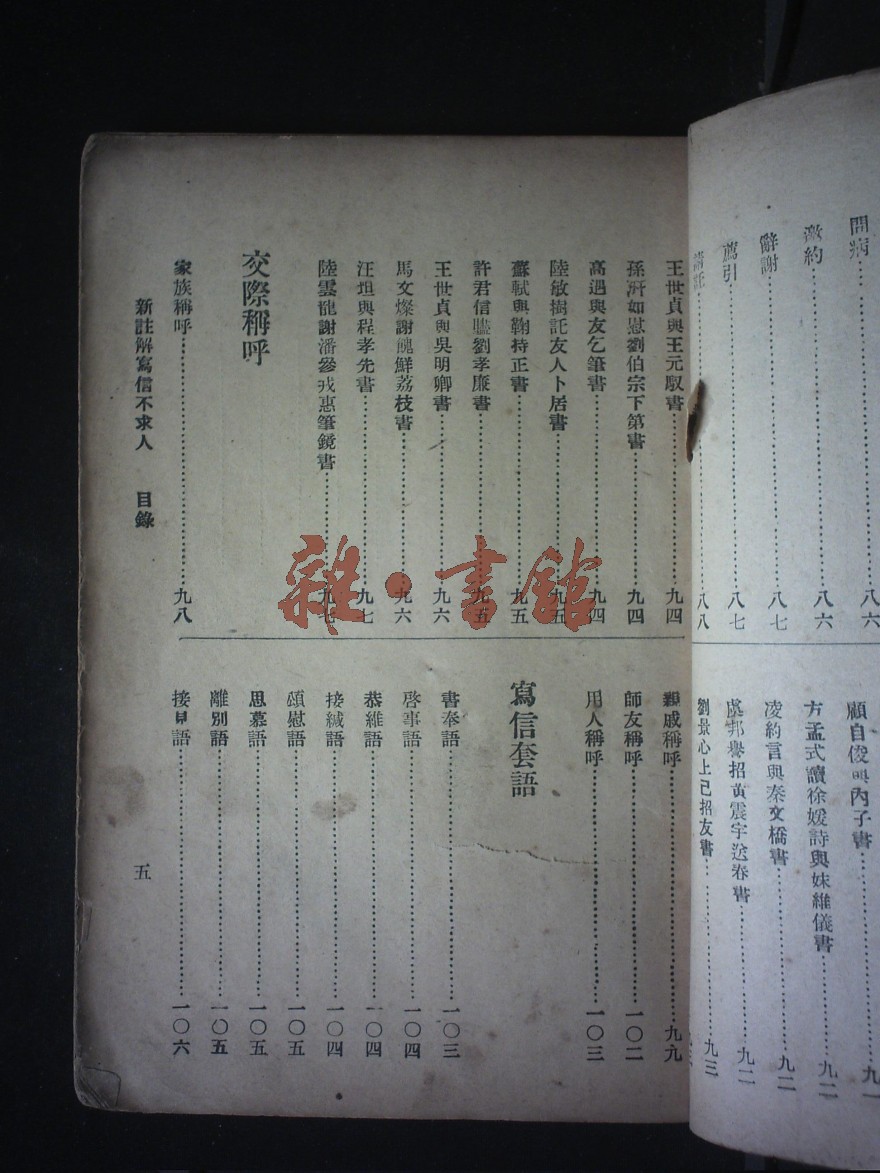 問病……………八六
邀約……………八六
辭謝……………八七
薦引……………八七
請託……………八八
顧自俊與內子書……………九一
方孟式讀徐媛詩與妹維儀書……………九二
凌約言與秦文橋書……………九二
虞邦譽招黃震宇送春書……………九二
劉景心上巳招友書……………九三
王世貞與王元馭書……………九四
孫
如慰劉伯宗下第書……………九四
高過與友乞筆書……………九四
陸敏樹託友人卜居書……………九五
蘇軾與鞠持正書……………九五
許君信
劉孝廉書……………九五
王世貞與吳明卿書……………九六
馬文燦謝餽鮮荔枝書……………九六
汪坦與程孝先書……………九七
陸雲龍謝潘參戎惠筆鏡書……………九七
交際稱呼
家族稱呼……………九八
親戚稱呼……………九九
師友稱呼……………一〇二
用人稱呼……………一〇三
寫信套語
書奉語……………一〇三
啓事語……………一〇四
恭維語……………一〇四
接緘語……………一〇四
頌慰語……………一〇五
思慕語……………一〇五
離別語……………一〇五
接見語……………一〇六
新註解寫信不求人 目錄
五
雜·書館